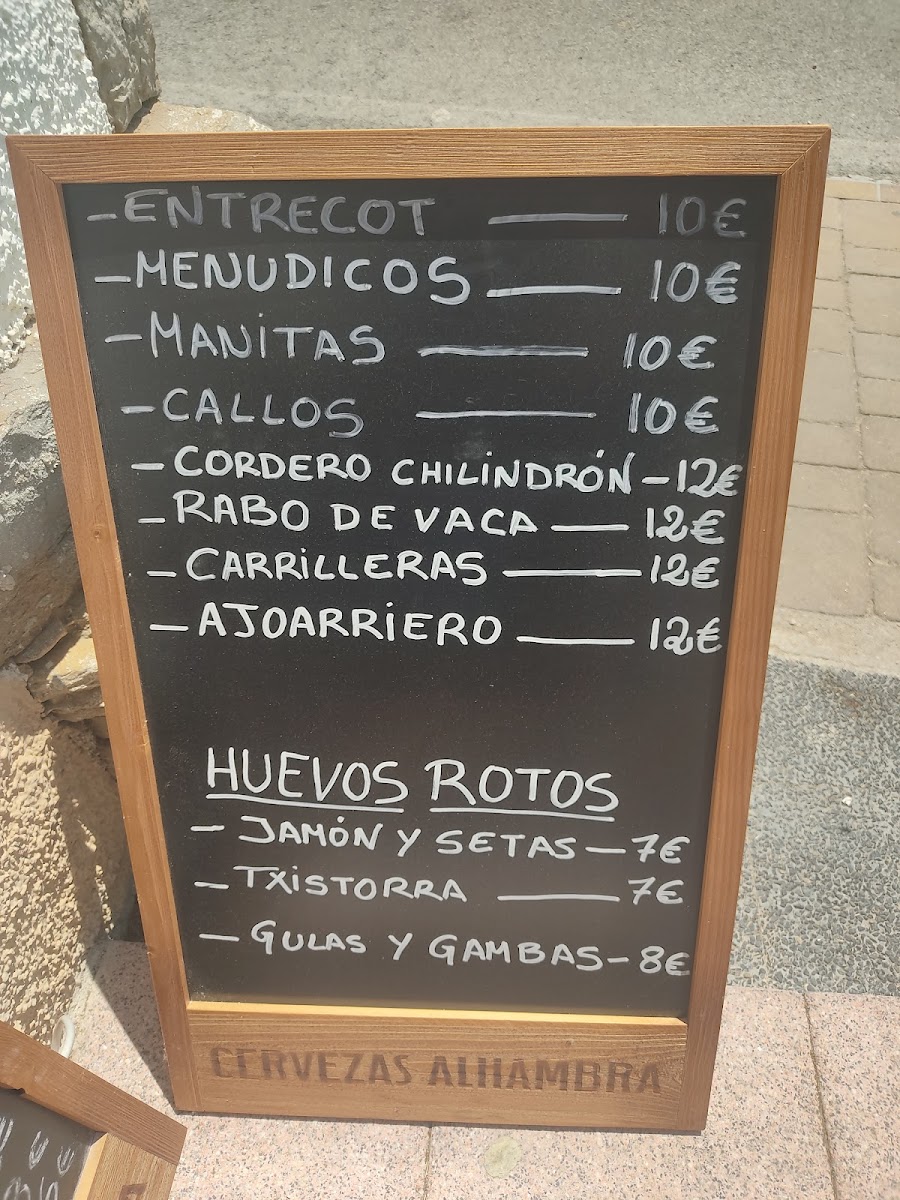 - ENTRECOT — 10€
- MENUDICOS — 10€
- MANITAS — 10€
- CALLOS — 10€
- CORDERO CHILINDRÓN - 12€
- RABO DE VACA — 12€
- CARRILLERAS — 12€
- AJOARRIERO — 12€
HUEVOS ROTOS
- JAMÓN Y SETAS - 7€
- TXISTORRA — 7€
- GULAS Y GAMBAS - 8€
CERVEZAS ALHAMBRA